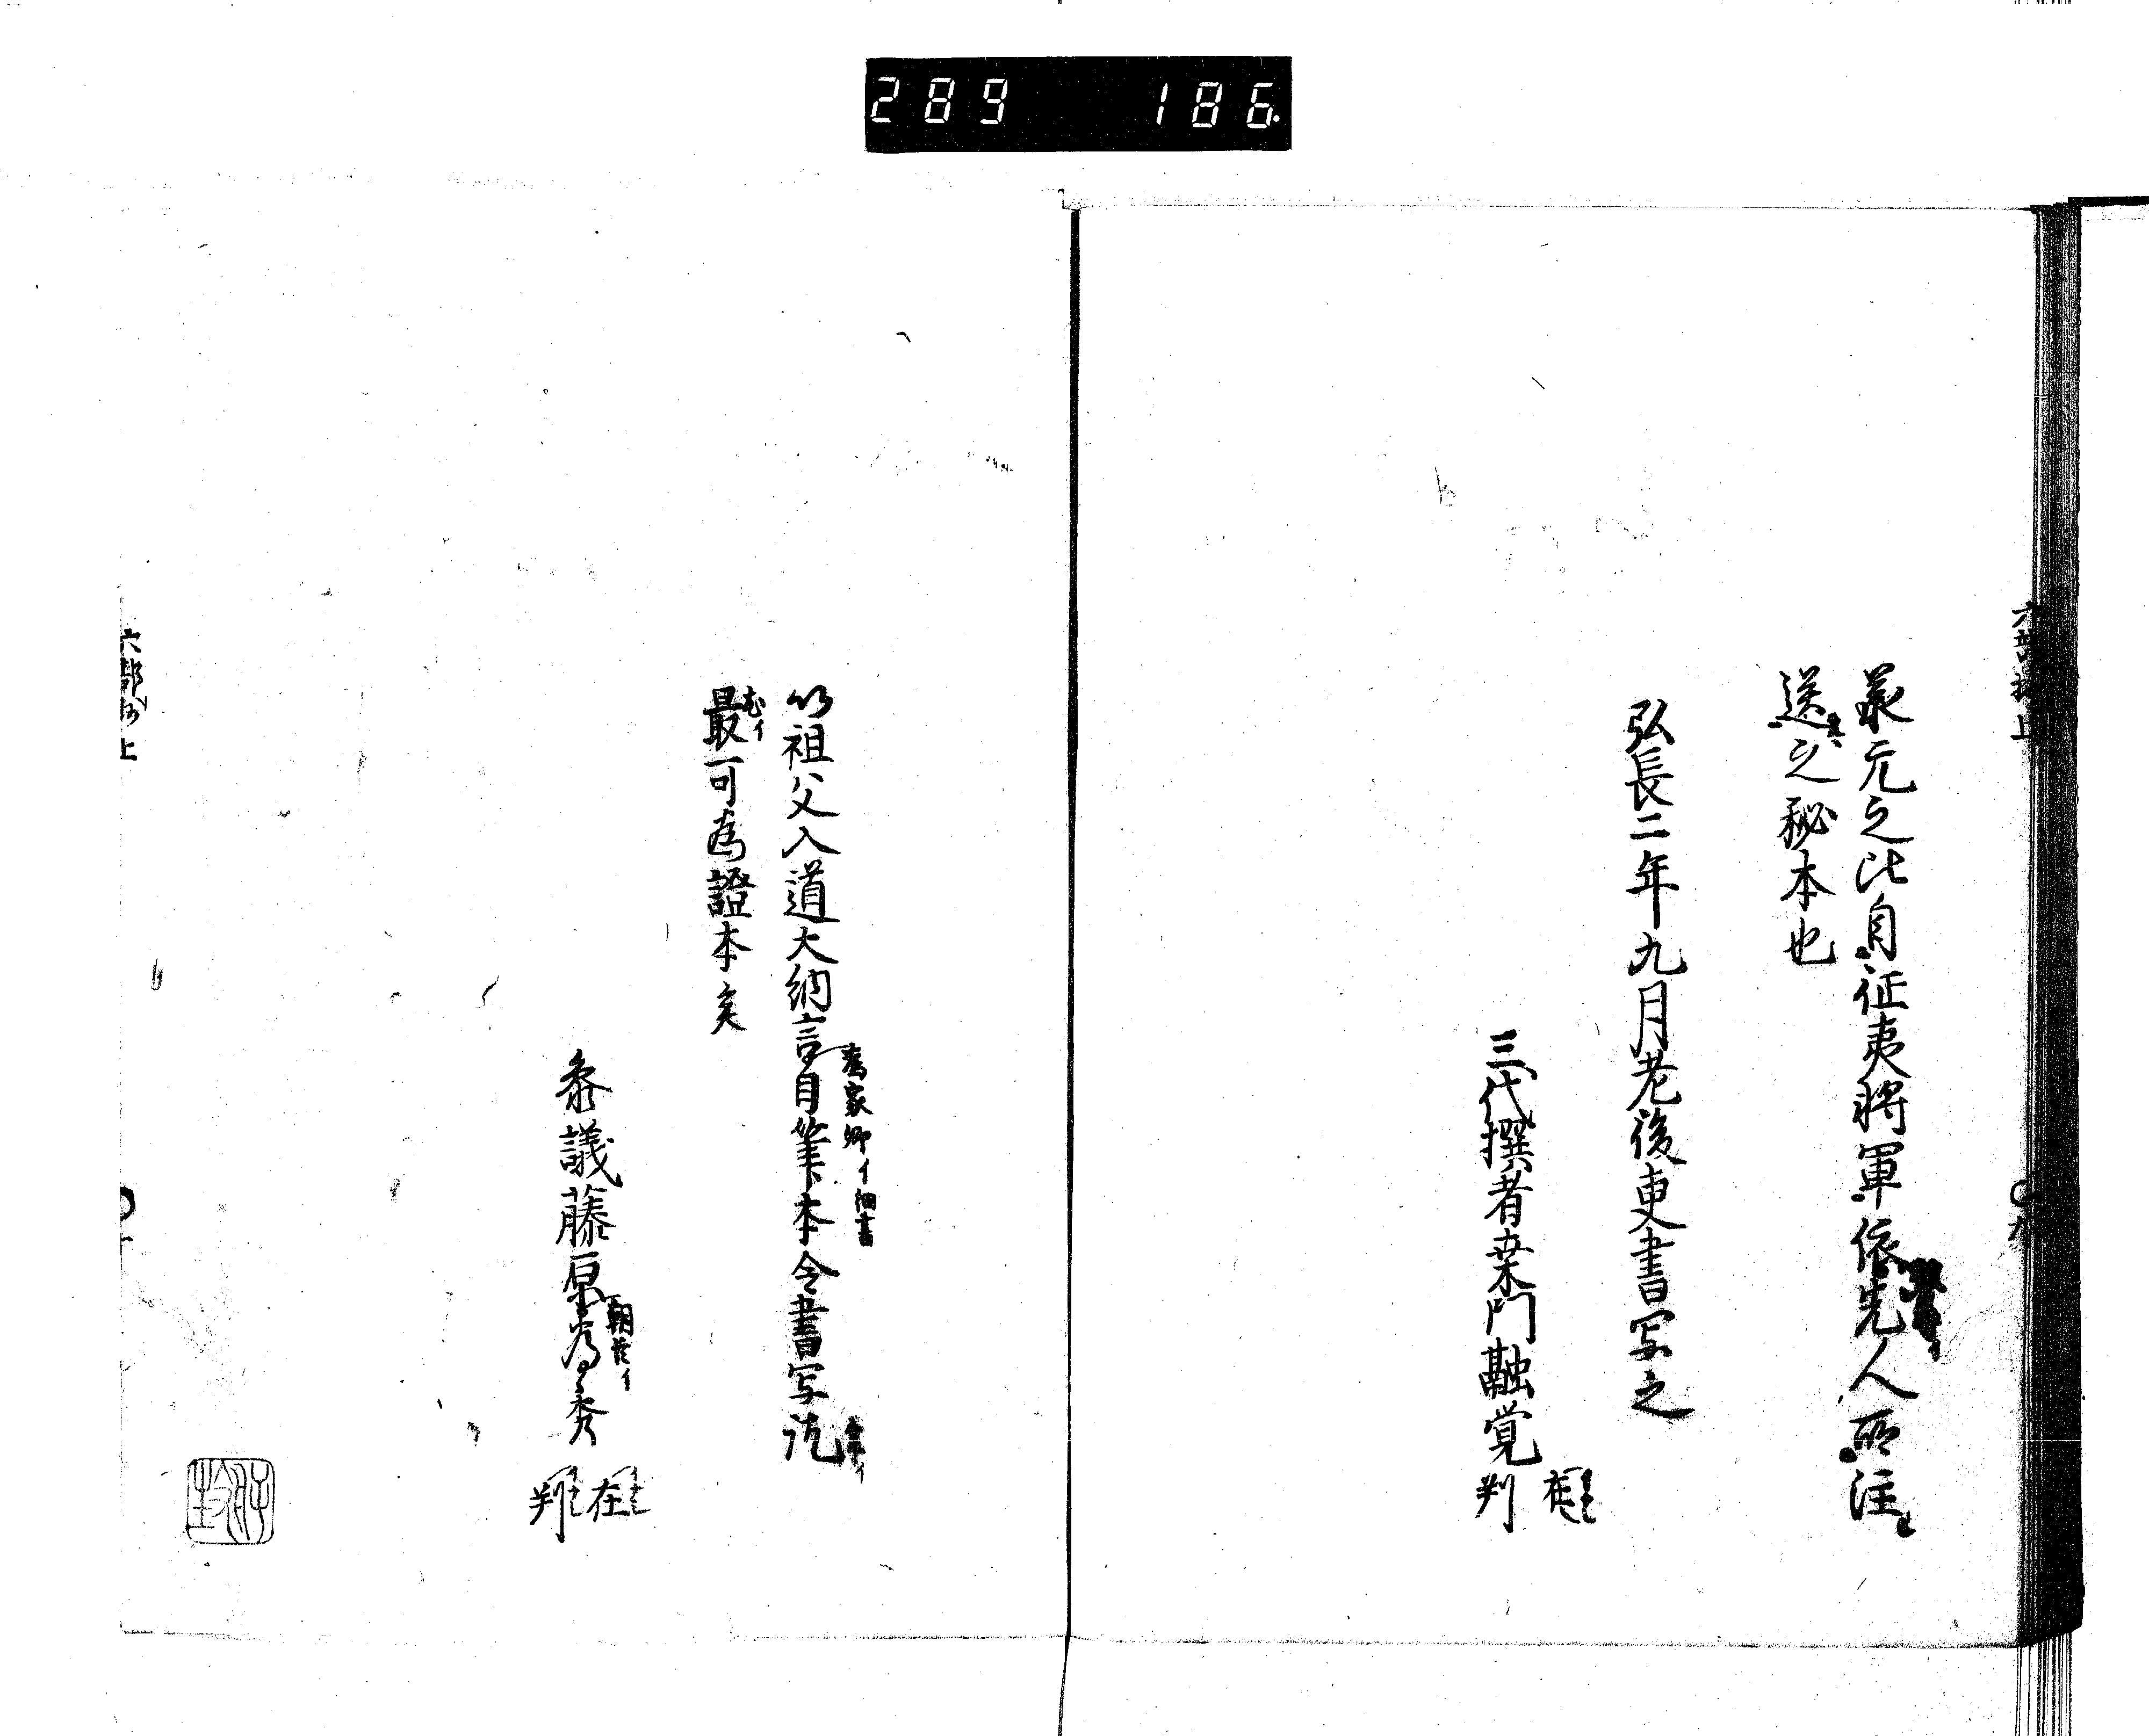 289 186
承元之比自征夷将軍依先人所注
送之秘本也
弘長二年九月老後更書写之
三代撰者桑門融覚
在
判
以祖父入道大納言自筆本令書写訖
為家卿イ細書
最可為證本矣
参議藤原為秀
朝臣イ
在
判
六部抄上